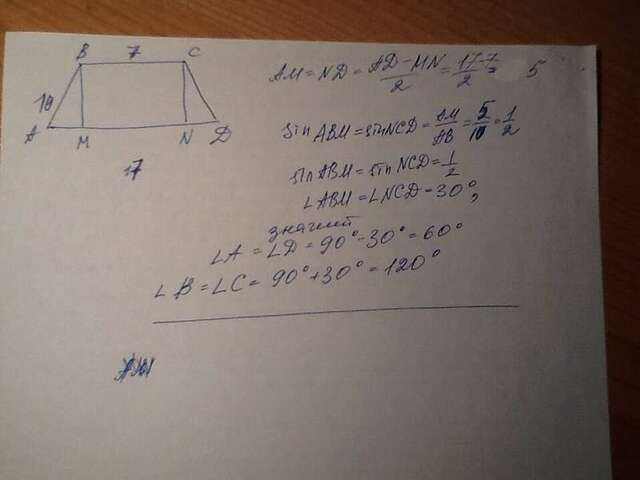 B 7 C
10
A M N D
17
AM = ND = AD - MN / 2 = 17-7 / 2 = 5
sin ABM = sin NCD = AM / AB = 5 / 10 = 1 / 2
sin ABM = sin NCD = 1 / 2
∠ABM = ∠NCD = 30°,
значит
∠A = ∠D = 90° - 30° = 60°
∠B = ∠C = 90° + 30° = 120°